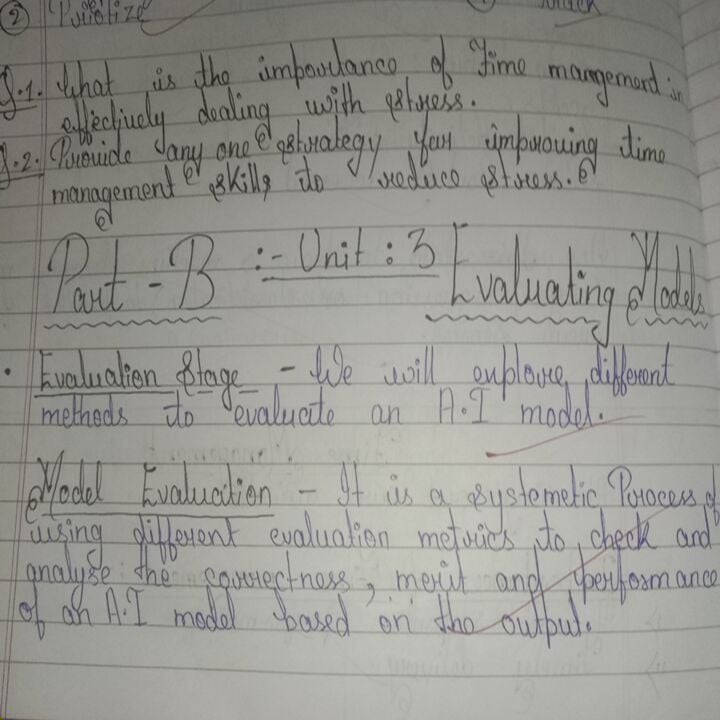 ② Priotize
Q.1. What is the importance of Time management in
effectively dealing with stress.
Q.2. Provide any one strategy for improving time
management skills to reduce stress.
Part - B :- Unit : 3 Evaluating Models
• Evaluation Stage - We will explore different
methods to evaluate an A.I model.
Model Evaluation - It is a systemetic Process of
using different evaluation metrics to check and
analyse the correctness, merit and performance
of an A.I model based on the output.